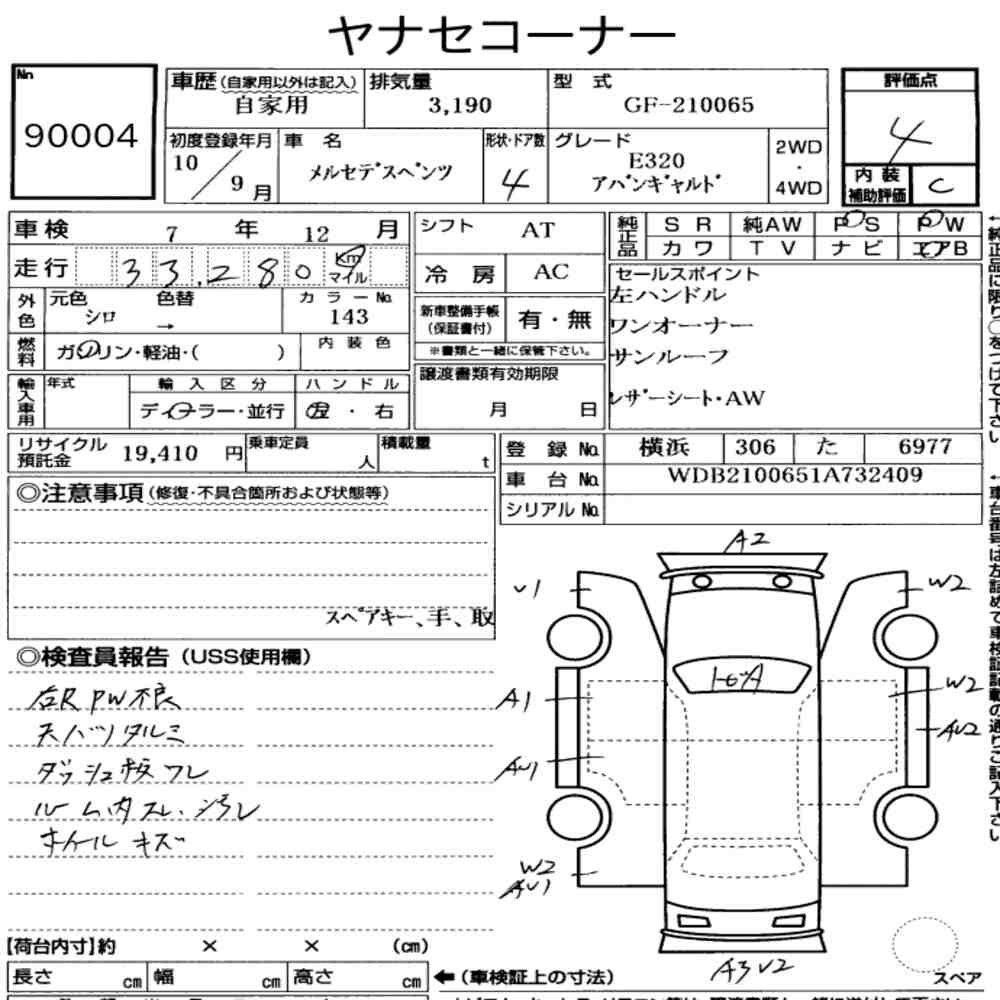 ヤナセコーナー
No 90004
車歴(自家用以外は記入) 自家用
排気量 3,190
型式 GF-210065
評価点 4
初度登録年月 10/9月
車名 メルセデスベンツ
形状・ドア数 4
グレード E320
アバンギャルド
2WD・4WD
内装補助評価 C
車検 7年12月
シフト AT
純正品 SR 純AW PS PW
カワ TV ナビ エアB
走行 33,280 Km マイル
冷房 AC
セールスポイント
左ハンドル
ワンオーナー
サンルーフ
レザーシート・AW
外色 元色 シロ 色替 →
カラーNo. 143
新車整備手帳(保証書付) 有・無
※書類と一緒に保管下さい。
燃料 ガソリン・軽油・( )
内装色
譲渡書類有効期限
月 日
輸入車用 年式 輸入区分 ハンドル
ディーラー・並行 左・右
リサイクル預託金 19,410円
乗車定員 人
積載量 t
登録No. 横浜 306 た 6977
車台No. WDB2100651A732409
シリアルNo.
◎注意事項(修復・不具合箇所および状態等)
スペアキー、手、取
◎検査員報告(USS使用欄)
右R PW不良
天バリタルミ
ダッシュ板ワレ
ルーム内スレ・汚レ
ホイールキズ
A2
U1
W2
A1
W2
AU2
AU1
W2
AU1
A3 U2
スペア
【荷台内寸】約 × × (cm)
長さ cm 幅 cm 高さ cm ←(車検証上の寸法)
←純正品に限り○をつけて下さい
←車台番号は左詰めて車検証記載の通りご記入下さい